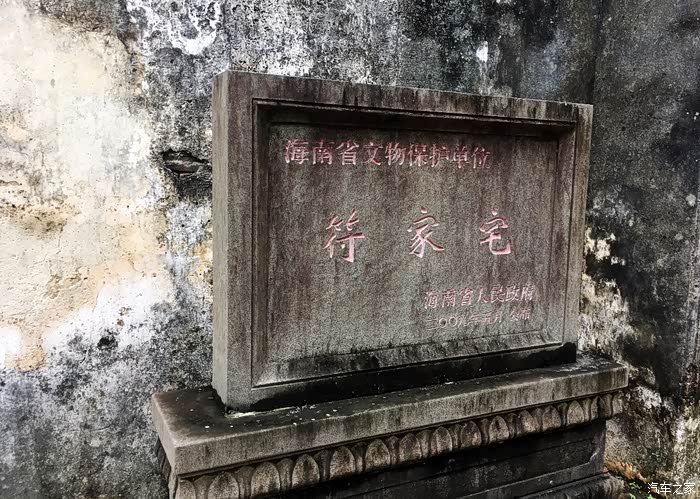 海南省文物保护单位
符家宅
海南省人民政府
二〇〇九年五月 公布
汽车之家